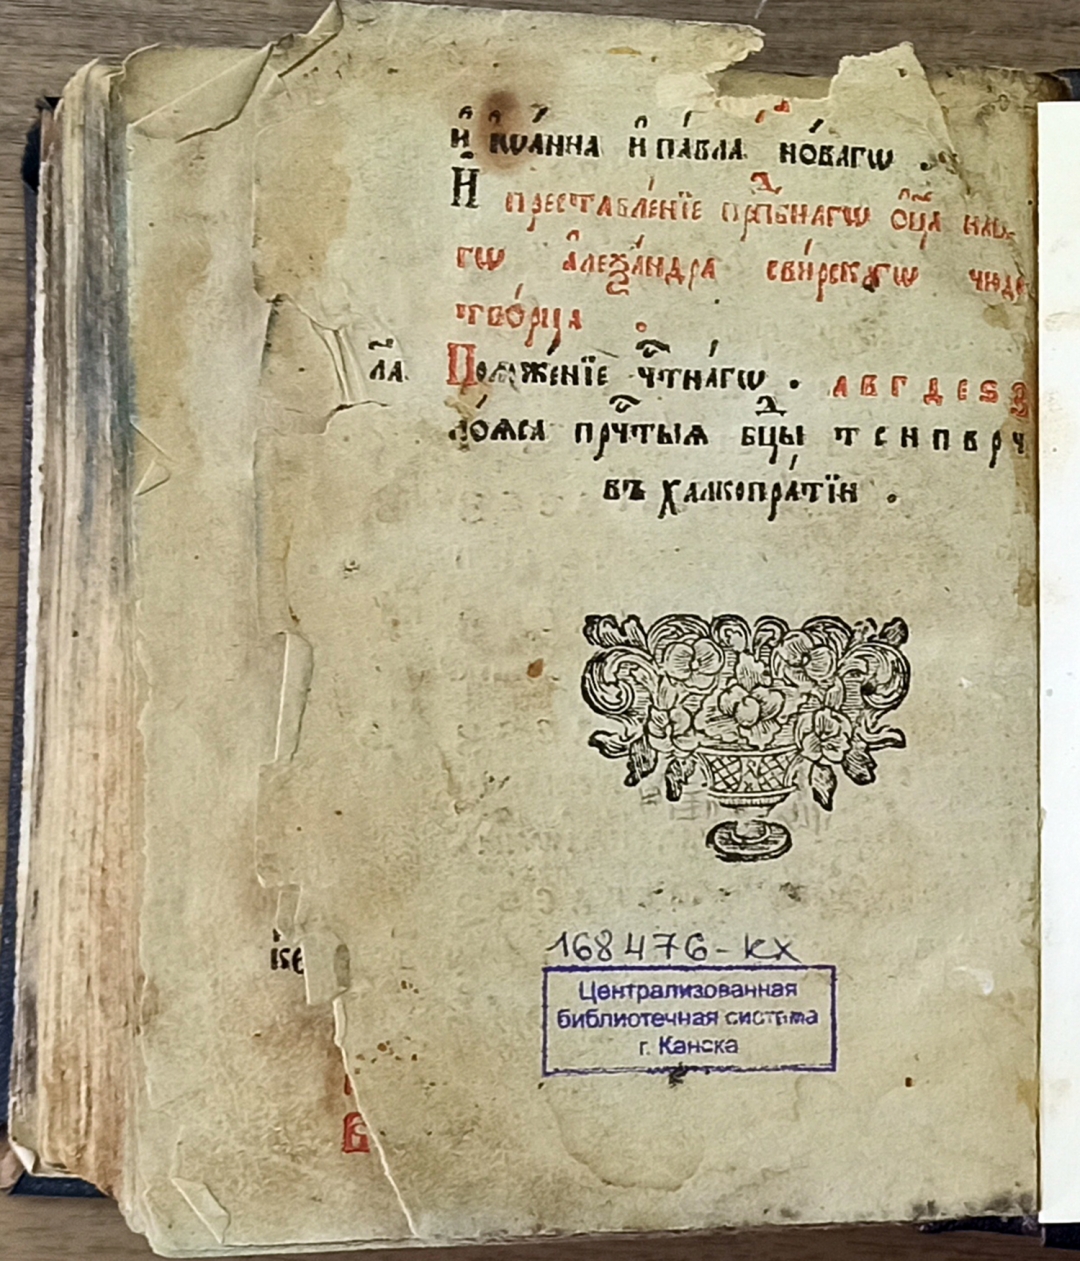 И҆ І҆ѡа́нна и҆ па́вла но́вагѡ .
И҆ преставле́нїе прпⷣбнагѡ ѻ҆ц҃а на́ше
гѡ а҆леѯа́ндра сви́рскагѡ чюдо
тво́рца .
л҃а. Положе́нїе чⷭ҇тна́гѡ . а в г д е ѕ з
по́ѧса прⷱ҇тыѧ бцⷣы т с н п в р ч
въ халкопра́тїи .
ік҃є
В
168476-кх
Централизованная
библиотечная система
г. Канска